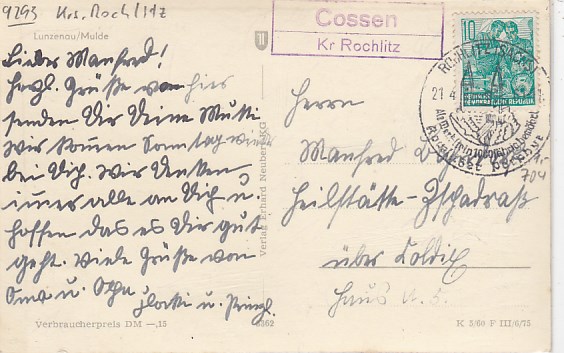 9293 Krs. Rochlitz
Lunzenau/Mulde
Lieber Manfred!
Herzl. Grüße von hier
senden Dir Deine Mutti
wir kommen Sonntag wieder
bei Dich. Wir denken
imer alle an Dich u.
hoffen das es Dir gut
geht. Viele Grüße von
Oma u. Opa
u.
Verbraucherpreis DM —,15
Verlag Erhard Neubert KG
Cossen
Kr Rochlitz
10
DEUTSCHE DEMOKRATISCHE REPUBLIK
ROCHLITZ (SACHS)
21.4
Herrn
Manfred
Heilstätte-Zschadraß
über Colditz
Haus
704
K 5/60 F III/6/75